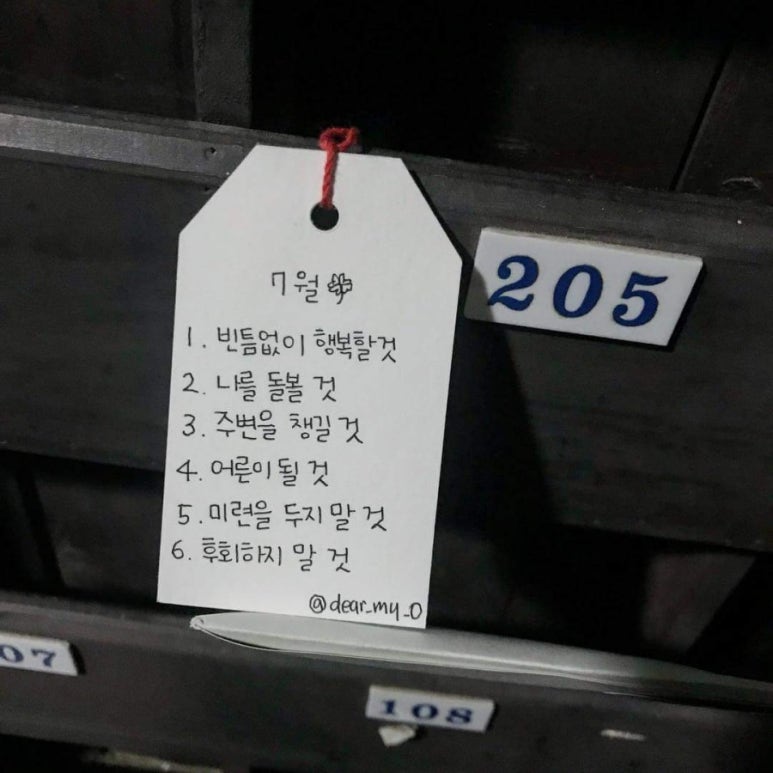 7월
205
1. 빈틈없이 행복할것
2. 나를 돌볼 것
3. 주변을 챙길 것
4. 어른이 될 것
5. 미련을 두지 말 것
6. 후회하지 말 것
@dear_my_0
07
108